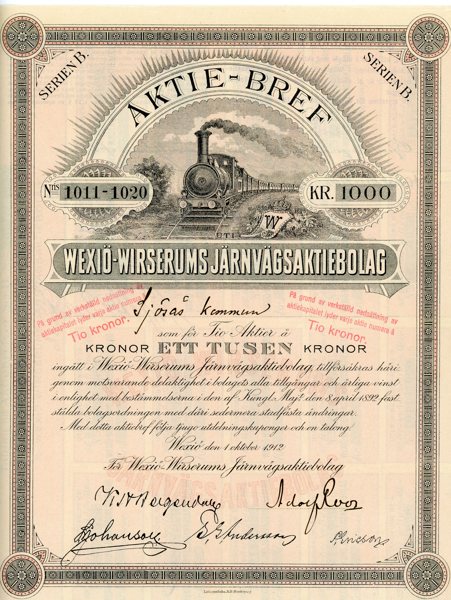 SERIEN B.
SERIEN B.
AKTIE-BREF
Nris 1011-1020
KR. 1000
W
UTI
WEXIÖ-WIRSERUMS JÄRNVÄGSAKTIEBOLAG
På grund av verkställd nedsättning av
aktiekapitalet lyder varje aktie numera å
Tio kronor.
På grund av verkställd nedsättning av
aktiekapitalet lyder varje aktie numera å
Tio kronor.
Sjösås kommun
som för Tio Aktier à
KRONOR ETT TUSEN KRONOR
ingått i Wexiö-Wirserums Järnvägsaktiebolag tillförsäkras häri-
genom motsvarande delaktighet i bolagets alla tillgångar och årliga vinst
i enlighet med bestämmelserna i den af Kongl. Maj:t den 8 april 1892 fast-
stälda bolagsordningen med däri sedermera stadfästa ändringar.
Med detta aktiebref följa tjugo utdelningskuponger och en talong.
Wexiö den 1 oktober 1912
För Wexiö-Wirserums Järnvägsaktiebolag
JÄRNVÄGSAKTIEBOLAG
Bergendahl
Adolf Roos
Johansson
Andersson
Ericson